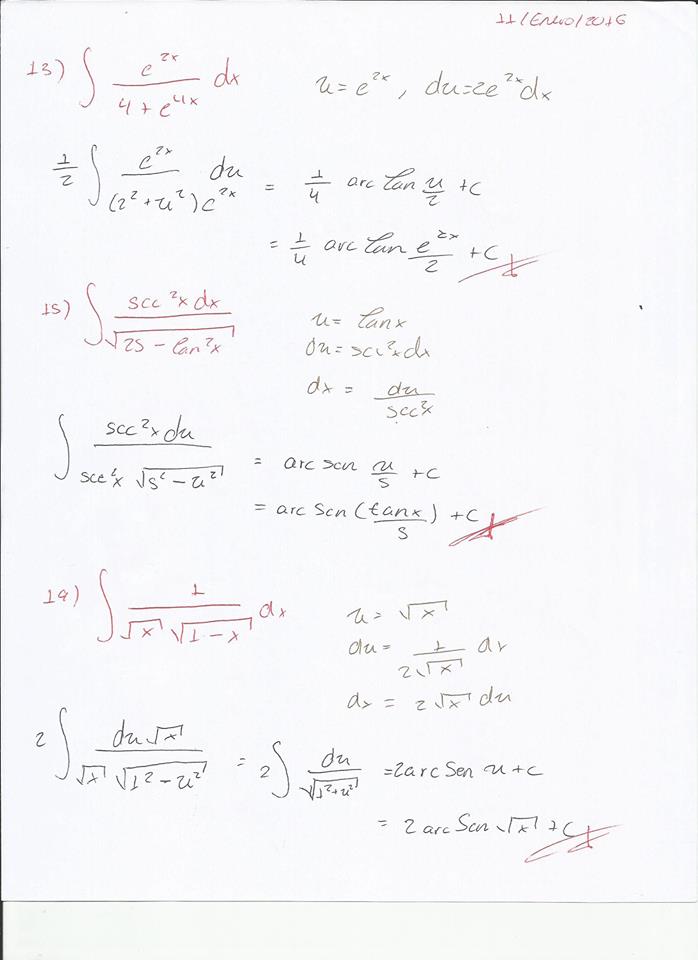 11/Enero/2016
13) ∫ e^{2x} / (4 + e^{4x}) dx    u = e^{2x}, du = 2e^{2x}dx
1/2 ∫ e^{2x} du / ((2² + u²) e^{2x}) = 1/4 arc tan u/2 + c
= 1/4 arc tan e^{2x}/2 + c
15) ∫ sec²x dx / √(25 - tan²x)    u = tanx
du = sec²x dx
dx = du / sec²x
∫ sec²x du / (sec²x √(5² - u²)) = arc sen u/5 + c
= arc sen (tanx/5) + c
19) ∫ 1 / (√x √(1 - x)) dx    u = √x
du = 1 / (2√x) dx
dx = 2√x du
2 ∫ du √x / (√x √(1² - u²)) = 2 ∫ du / √(1² + u²) = 2arc Sen u + c
= 2 arc Sen √x + c